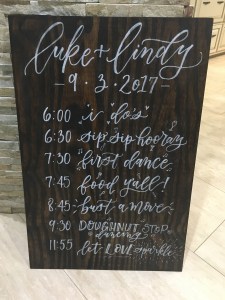 luke + lindy
- 9.3.2017 -
6:00 i do's
6:30 sip sip hooray
7:30 first dance
7:45 food yall!
8:45 bust a move
9:30 DOUGHNUT STOP
dancing
11:55 let LOVE sparkle